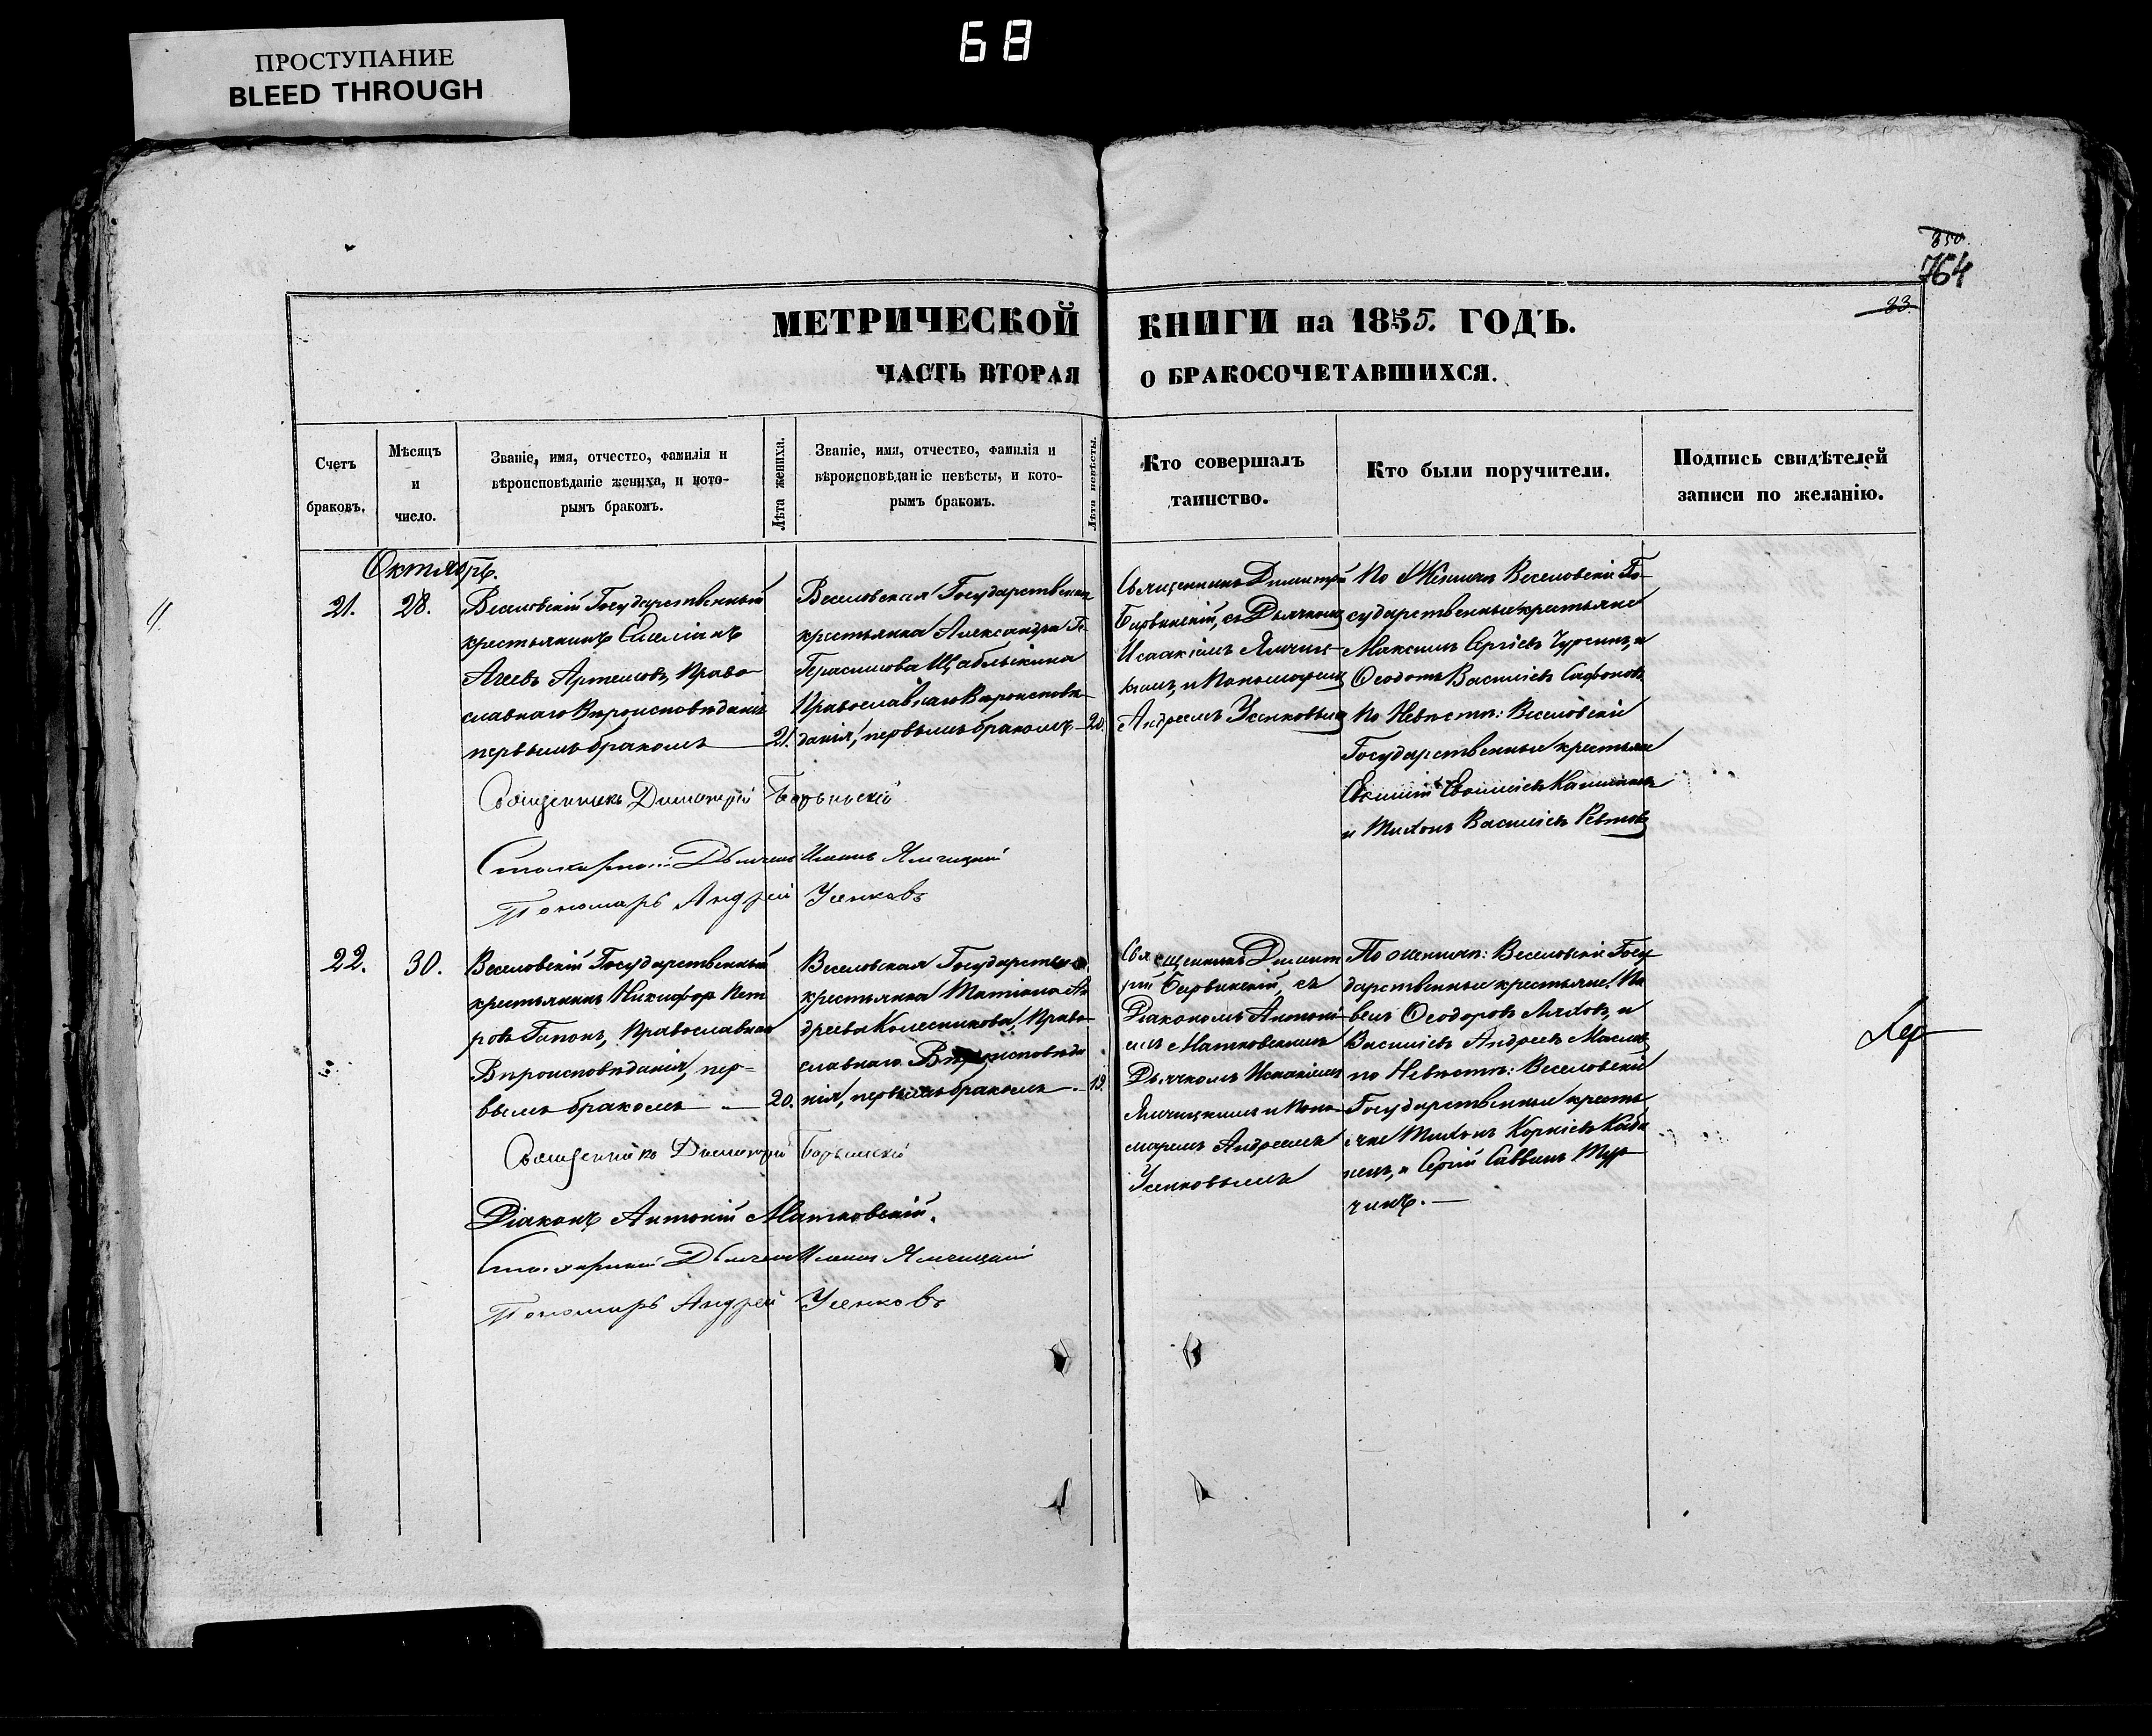 68
ПРОСТУПАНИЕ
BLEED THROUGH
350
764
23.
МЕТРИЧЕСКОЙ КНИГИ на 1855. ГОДЪ.
ЧАСТЬ ВТОРАЯ О БРАКОСОЧЕТАВШИХСЯ.
Счетъ
браковъ.
Мѣсяцъ
и
число.
Званіе, имя, отчество, фамилія и
вѣроисповѣданіе жениха, и кото-
рымъ бракомъ.
Лѣта жениха.
Званіе, имя, отчество, фамилія и
вѣроисповѣданіе невѣсты, и кото-
рымъ бракомъ.
Лѣта невѣсты.
Кто совершалъ
таинство.
Кто были поручители.
Подпись свидѣтелей
записи по желанію.
Октябрь.
21.
28.
Веселовскій Государственный
крестьянинъ Емеліанъ
Агеевъ Артемовъ, Право-
славнаго Вѣроисповѣданія
первымъ бракомъ
21.
Веселовская Государственная
крестьянка Александра Ге-
Герасимова Щаблыкина
Православнаго Вѣроисповѣ-
данія, первымъ бракомъ
20.
Священникъ Димитрій
Барвинскій, съ Дьячкомъ
Исаакіемъ
и Пономаремъ
Андреемъ Усенковымъ
По Женихѣ Веселовскіе Го-
сударственные крестьяне
Максимъ Сергіевъ и
Ѳеодотъ Василіевъ Сафоновъ
По Невѣстѣ: Веселовскіе
Государственные крестьяне
и Тихонъ Василіевъ
Священникъ Димитрій Барвинскій
Дьячекъ
Пономарь Андрей Усенковъ
22.
30.
Веселовскій Государственный
крестьянинъ Никифоръ Пет
ровъ Гапонъ, Православнаго
Вѣроисповѣданія, пер-
вымъ бракомъ
20.
Веселовская Государствен
крестьянка Татіана Ан
дреева Колесникова, Право-
славнаго Вѣроисповѣда
нія, первымъ бракомъ
19.
Священникъ Димит
рій Барвинскій, съ
Діакономъ Антоні-
емъ Матковскимъ
Дьячкомъ Исаакіемъ
и Поно-
маремъ Андреемъ
Усенковымъ
По женихѣ: Веселовскіе Госу
дарственные крестьяне: Па
велъ Ѳеодоровъ Ляховъ, и
Василіевъ Андреевъ
по Невѣстѣ: Веселовскіе
Государственные кресть
яне Тихонъ Корніевъ Каба
нецъ, и Сергій Саввинъ Тур
чинъ.
Священникъ Димитрій Барвинскій
Діаконъ Антоній Матковскій.
Дьячекъ
Пономарь Андрей Усенковъ